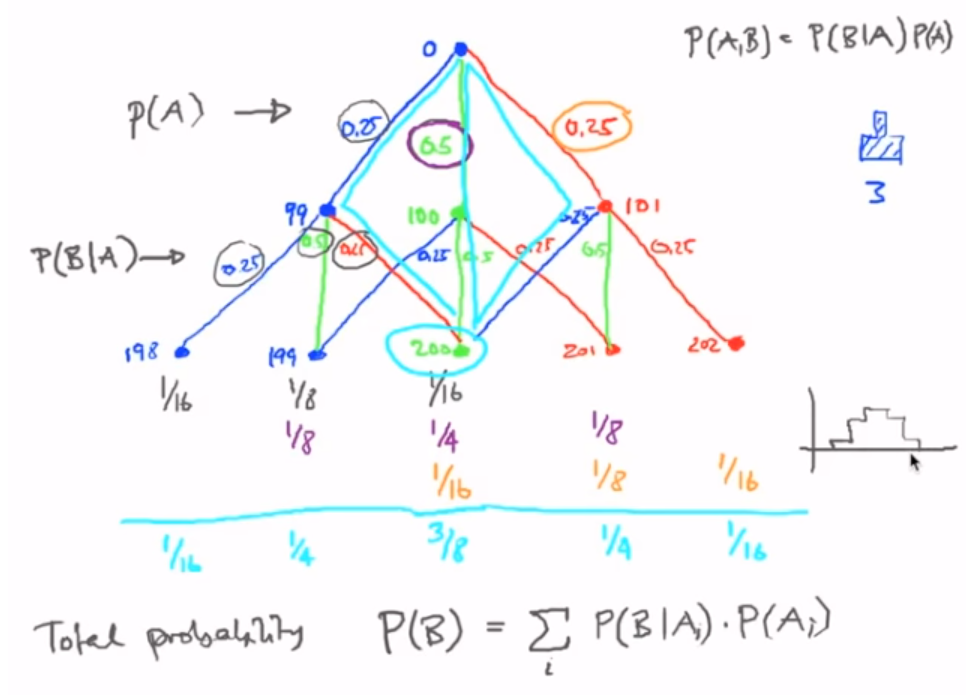 0
P(A,B) = P(B|A)P(A)
P(A) →
0.25
0.5
0.25
3
99
100
101
P(B|A) →
0.25
0.5
0.25
0.25
0.5
0.25
0.25
0.5
0.25
198
199
200
201
202
1/16
1/8
1/16
1/8
1/4
1/8
1/16
1/8
1/16
1/16
1/4
3/8
1/4
1/16
Total probability P(B) = ∑ P(B|Ai)·P(Ai)
i